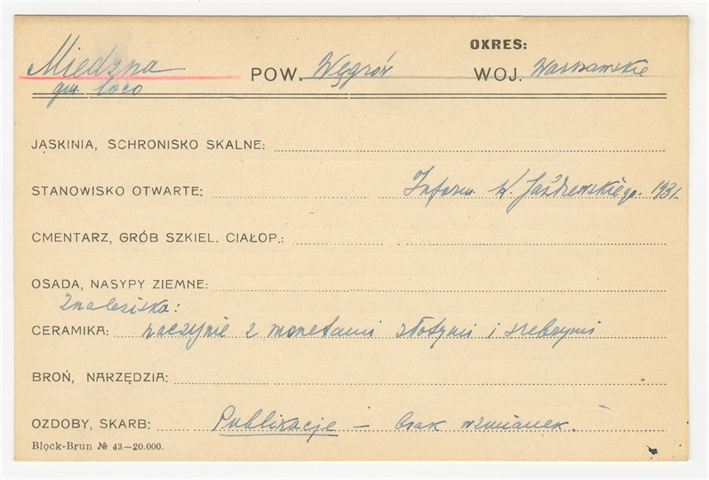 OKRES:
Miedzna POW. Węgrów WOJ. Warszawskie
gm. loco
JASKINIA, SCHRONISKO SKALNE:
STANOWISKO OTWARTE: Inform. K. Jażdżewskiego. 1931.
CMENTARZ, GRÓB SZKIEL. CIAŁOP.:
OSADA, NASYPY ZIEMNE:
Znaleziska:
CERAMIKA: naczynie z monetami złotymi i srebrnymi
BROŃ, NARZĘDZIA:
OZDOBY, SKARB: Publikacje – brak wzmianek.
Błock-Brun № 43—20.000.